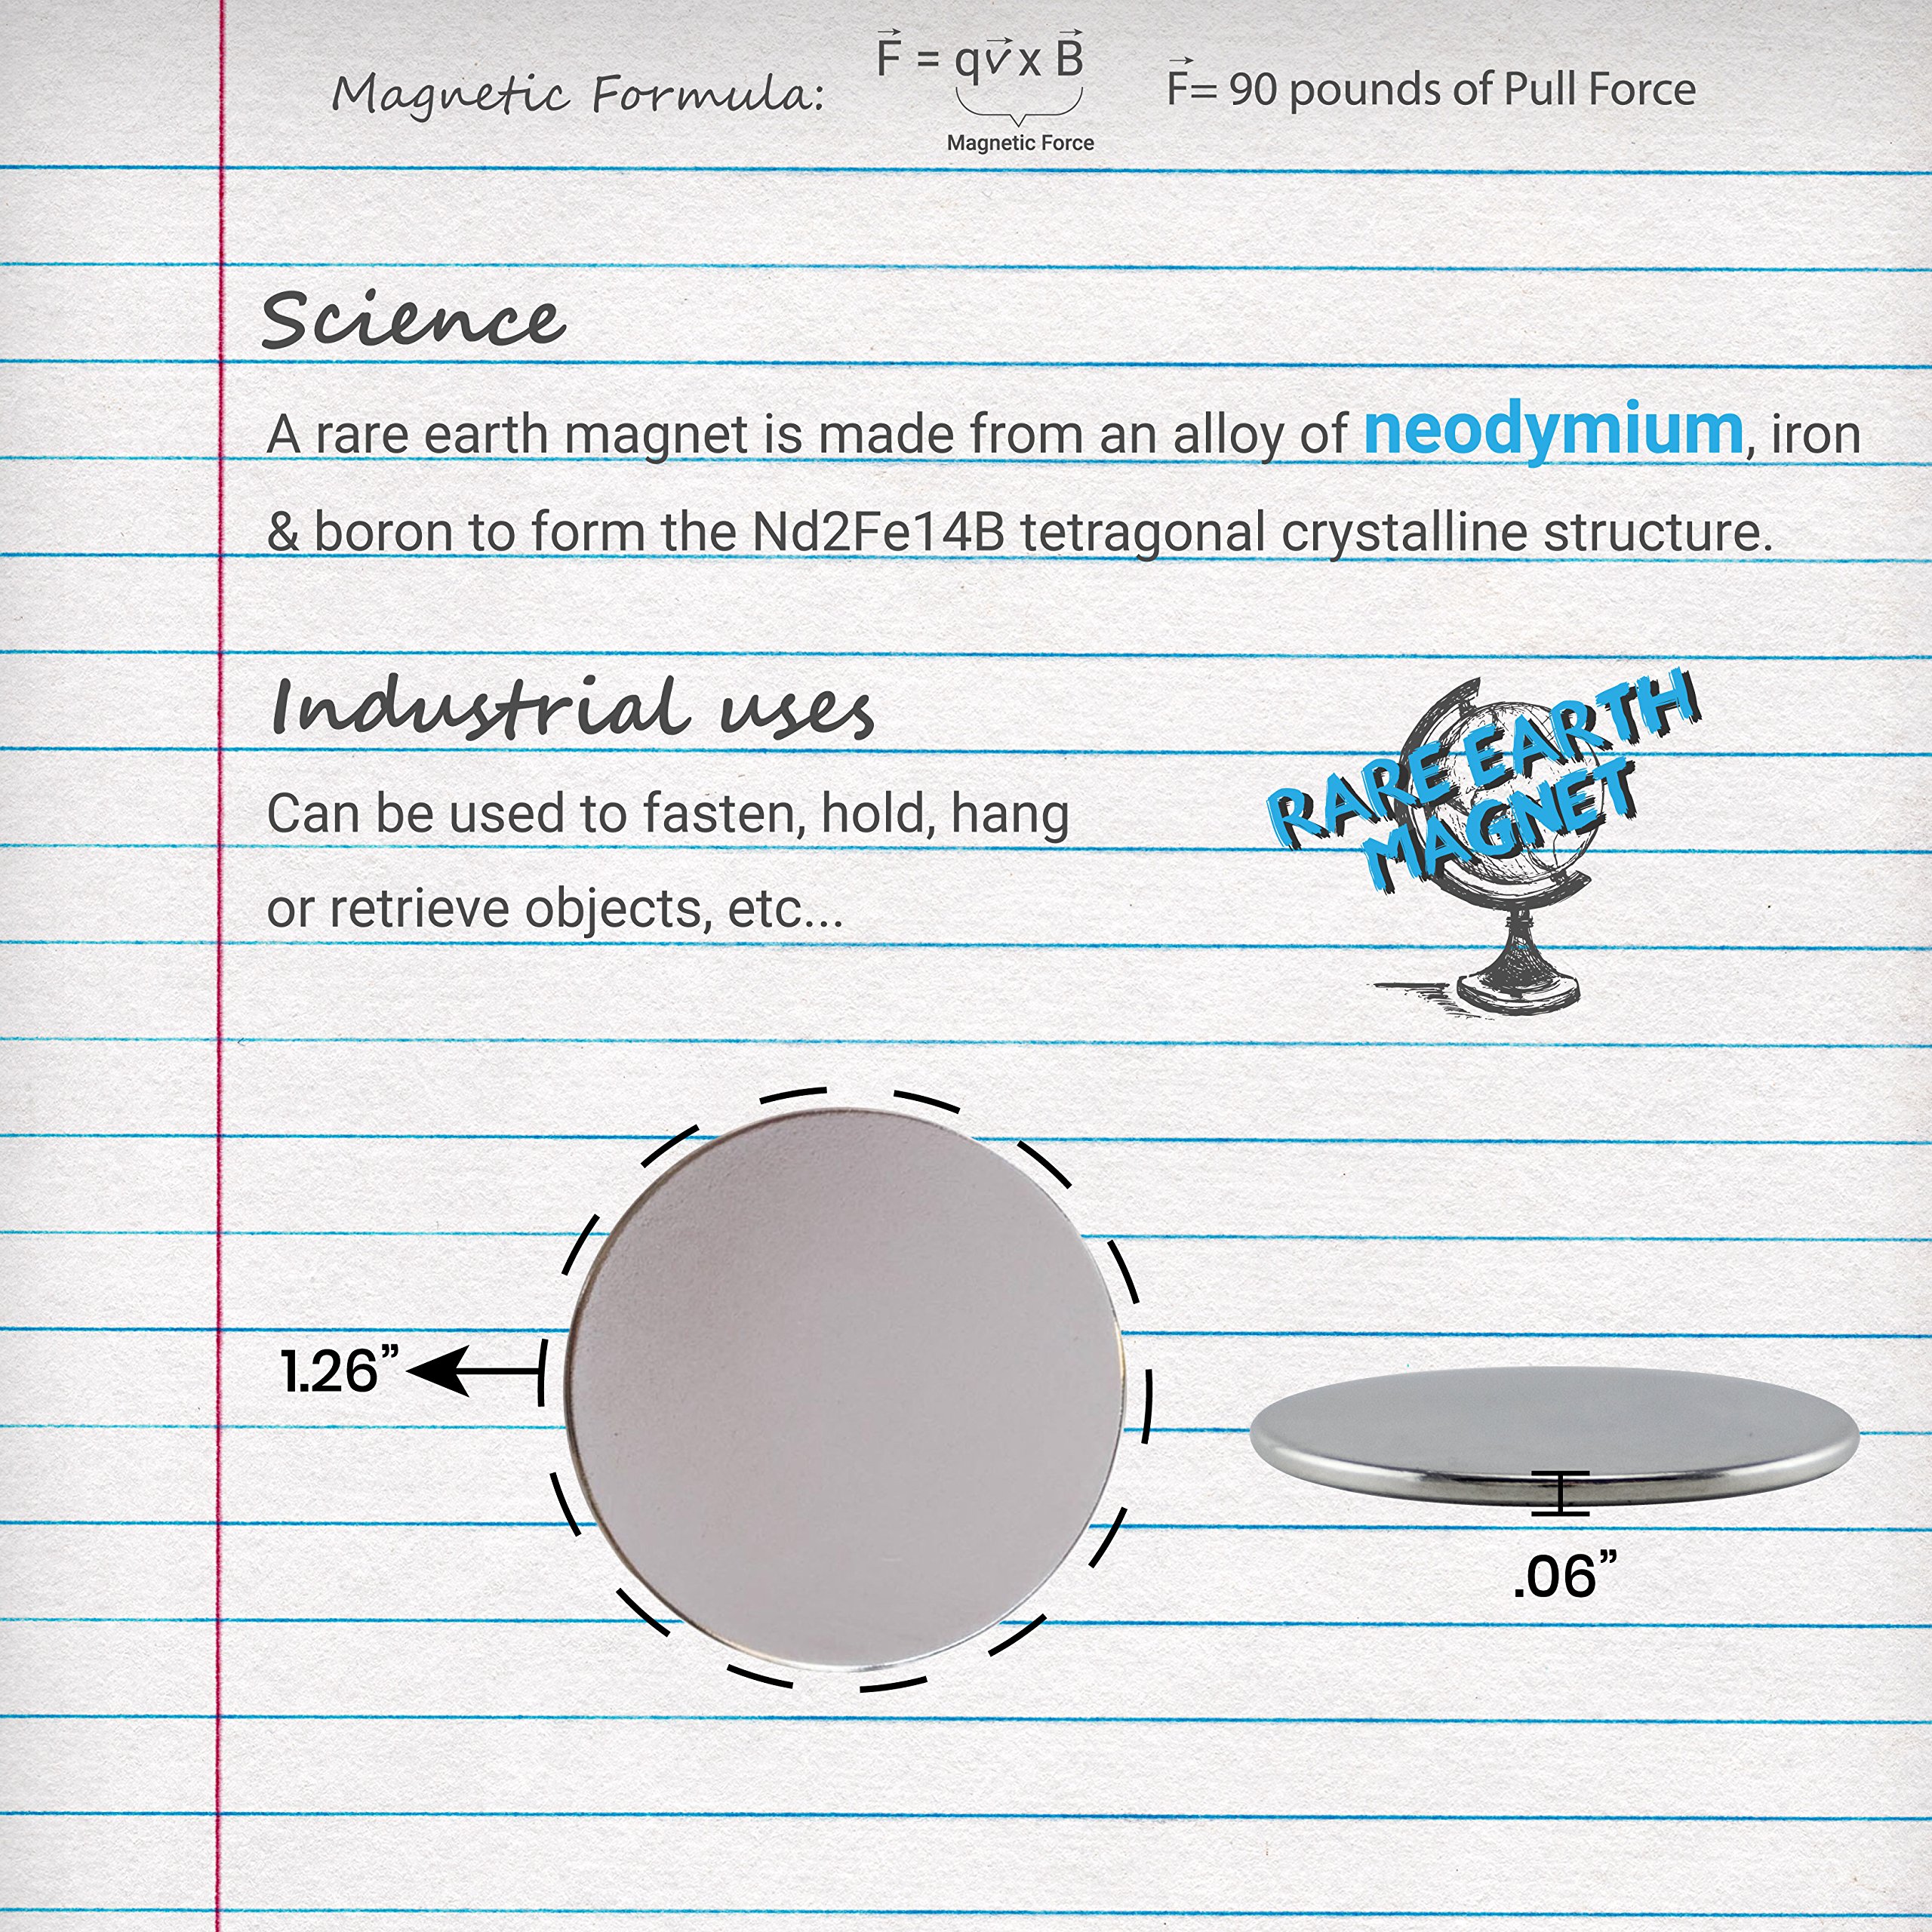 Magnetic Formula:
F⃗ = qv⃗ x B⃗
Magnetic Force
F⃗= 90 pounds of Pull Force
Science
A rare earth magnet is made from an alloy of neodymium, iron
& boron to form the Nd2Fe14B tetragonal crystalline structure.
Industrial uses
Can be used to fasten, hold, hang
or retrieve objects, etc...
RARE EARTH
MAGNET
1.26”
.06”